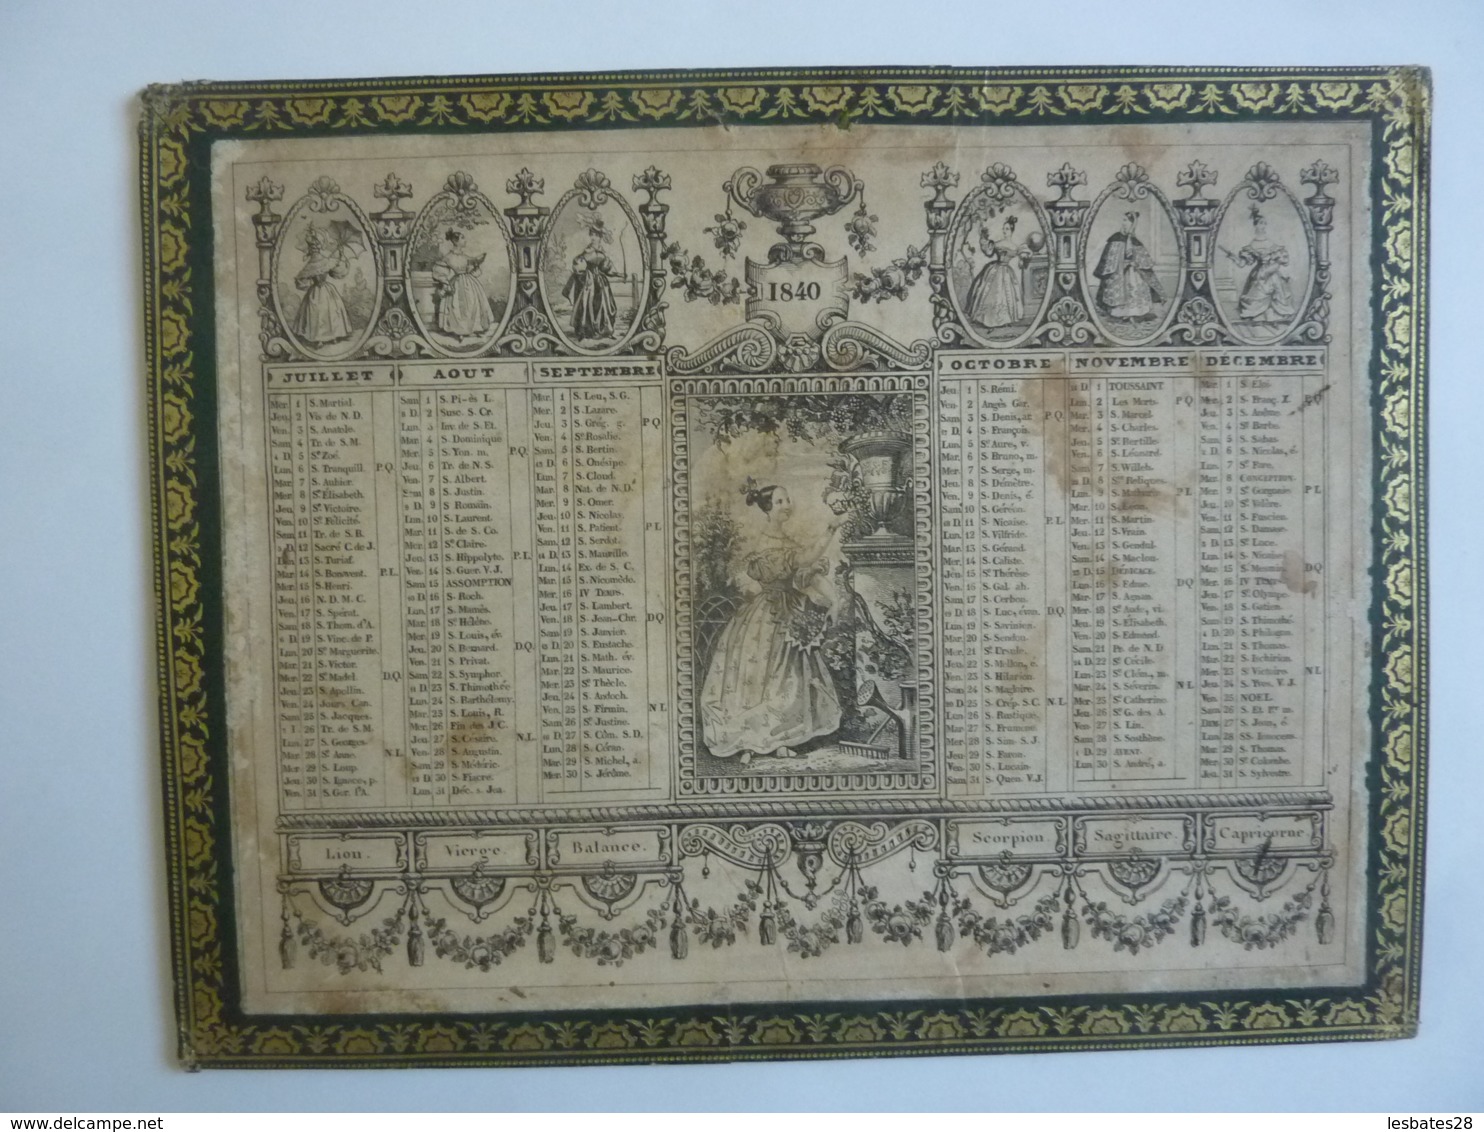 1840
JUILLET
Mer. 1 S. Martial.
Jeu. 2 Vis. de N. D.
Ven. 3 S. Anatole.
Sam 4 Tr. de S. M.
D. 5 Ste Zoé.
Lun. 6 S. Tranquill. P.Q.
Mar. 7 S. Aubier.
Mer. 8 Ste Elisabeth.
Jeu. 9 Ste Victoire.
Ven. 10 Ste Félicité.
Sam. 11 Tr. de S. B.
D. 12 Sacré C. de J.
13 S. Turiaf.
Mar. 14 S. Bonavent. P.L.
Mer. 15 S. Henri.
Jeu. 16 N. D. M. C.
Ven. 17 S. Spérat.
Sam 18 S. Thom. d'A.
D. 19 S. Vinc. de P.
Lun. 20 Ste Marguerite.
Mar. 21 S. Victor.
Mer. 22 Ste Madel. D.Q.
Jeu. 23 S. Apollin.
Ven. 24 Jours Can.
Sam 25 S. Jacques.
26 Tr. de S. M.
Lun. 27 S. Georges.
Mar. 28 Ste Anne. N.L.
Mer. 29 S. Loup.
Jeu. 30 S. Ignace, p.
Ven. 31 S. Ger. l'A.
AOUT
Sam 1 S. Pi-ès L.
D. 2 Susc. S. Cr.
Lun. 3 Inv. de S. Et.
Mar. 4 S. Dominique
Mer. 5 S. Yon. m. P.Q.
Jeu. 6 Tr. de N. S.
Ven. 7 S. Albert.
Sam 8 S. Justin.
D. 9 S. Romain.
Lun. 10 S. Laurent.
Mar. 11 S. de S. Co.
Mer. 12 Ste Claire.
Jeu. 13 S. Hippolyte. P.L.
Ven. 14 S. Guer. V. J.
Sam 15 ASSOMPTION
D. 16 S. Roch.
Lun. 17 S. Mamès.
Mar. 18 Ste Hélène.
Mer. 19 S. Louis, év.
Jeu. 20 S. Bernard. D.Q.
Ven. 21 S. Privat.
Sam. 22 S. Symphor.
D. 23 S. Thimothée
Lun. 24 S. Barthélemy.
Mar. 25 S. Louis, R.
Mer. 26 Fin des J. C.
Jeu. 27 S. Césaire. N.L.
Ven. 28 S. Augustin.
Sam 29 S. Médéric.
D. 30 S. Fiacre.
Lun. 31 Déc. s. Jea.
SEPTEMBRE
Mar. 1 S. Leu, S. G.
Mer. 2 S. Lazare.
Jeu. 3 S. Grég. g. P.Q.
Ven. 4 Ste Rosalie.
Sam. 5 S. Bertin.
D. 6 S. Onésipe.
Lun. 7 S. Cloud.
Mar. 8 Nat. de N. D.
Mer. 9 S. Omer.
Jeu. 10 S. Nicolas.
Ven. 11 S. Patient. P.L.
Sam. 12 S. Serdot.
D. 13 S. Maurille.
Lun. 14 Ex. de S. C.
Mar. 15 S. Nicomède.
Mer. 16 IV TEMPS.
Jeu. 17 S. Lambert.
Ven. 18 S. Jean-Chr. D.Q.
Sam 19 S. Janvier.
D. 20 S. Eustache.
Lun. 21 S. Math. év.
Mar. 22 S. Maurice.
Mer. 23 Ste Thècle.
Jeu. 24 S. Andoch.
Ven. 25 S. Firmin. N.L.
Sam 26 Ste Justine.
D. 27 S. Côm. S. D.
Lun. 28 S. Céran.
Mar. 29 S. Michel, a.
Mer. 30 S. Jérôme.
OCTOBRE
Jeu. 1 S. Rémi.
Ven. 2 Anges Gar.
Sam 3 S. Denis, ar. P.Q.
D. 4 S. François.
Lun. 5 Ste Aure, v.
Mar. 6 S. Bruno, m.
Mer. 7 S. Serge, m.
Jeu. 8 S. Démètre.
Ven. 9 S. Denis, é.
Sam 10 S. Géréon.
D. 11 S. Nicaise. P.L.
Lun. 12 S. Vilfride.
Mar. 13 S. Gérand.
Mer. 14 S. Caliste.
Jeu. 15 Ste Thérèse.
Ven. 16 S. Gal. ab.
Sam 17 S. Cerbon.
D. 18 S. Luc, évan. D.Q.
Lun. 19 S. Savinien.
Mar. 20 S. Sendou.
Mer. 21 Ste Ursule.
Jeu. 22 S. Mellon, é.
Ven. 23 S. Hilarion
Sam 24 S. Magloire.
D. 25 S. Crép. S. C. N.L.
Lun. 26 S. Rustique.
Mar. 27 S. Frumence
Mer. 28 S. Sim. S. J.
Jeu. 29 S. Faron.
Ven. 30 S. Lucain.
Sam. 31 S. Quen. V. J.
NOVEMBRE
D. 1 TOUSSAINT.
Lun. 2 Les Morts. P.Q.
Mar. 3 S. Marcel.
Mer. 4 S. Charles.
Jeu. 5 Ste Bertille.
Ven. 6 S. Léonard.
Sam 7 S. Willeb.
D. 8 Stes Reliques.
Lun. 9 S. Mathur. P.L.
Mar. 10 S. Léon.
Mer. 11 S. Martin.
Jeu. 12 S. Vrain.
Ven. 13 S. Gendul.
Sam 14 S. Maclou.
D. 15 DÉDICACE.
Lun. 16 S. Edme. D.Q.
Mar. 17 S. Agnan.
Mer. 18 Ste Aude, vi.
Jeu. 19 S. Elisabeth.
Ven. 20 S. Edmond.
Sam 21 Pr. de N. D
D. 22 Ste Cécile.
Lun. 23 S. Clém., m.
Mar. 24 S. Séverin. N.L.
Mer. 25 Ste Catherine.
Jeu. 26 Ste G. des A.
Ven. 27 S. Lin.
Sam 28 S. Sosthène.
D. 29 AVENT.
Lun. 30 S. André, a.
DÉCEMBRE
Mar. 1 S. Eloi.
Mer. 2 S. Franç. X.
Jeu. 3 S. Anême.
Ven. 4 Ste Barbe.
Sam 5 S. Sabas.
D. 6 S. Nicolas, é.
Lun. 7 Ste Fare.
Mar. 8 CONCEPTION.
Mer. 9 Ste Gorgonie. P.L.
Jeu. 10 Ste Valère.
Ven. 11 S. Fuscien.
Sam 12 S. Damase.
D. 13 Ste Luce.
Lun. 14 S. Nicaise
Mar. 15 S. Mesmin D.Q.
Mer. 16 IV TEMPS.
Jeu. 17 Ste Olympe.
Ven. 18 S. Gatien.
Sam 19 S. Thimothé
D. 20 S. Philogon.
Lun. 21 S. Thomas.
Mar. 22 S. Ischirion.
Mer. 23 Ste Victoire. N.L.
Jeu. 24 S. Yves. V. J.
Ven. 25 NOEL.
Sam 26 S. Et. Ier m.
27 S. Jean, é.
Lun. 28 SS. Innocens.
Mar. 29 S. Thomas.
Mer. 30 Ste Colombe.
Jeu. 31 S. Sylvestre.
Lion.
Vierge.
Balance.
Scorpion
Sagittaire.
Capricorne.
www.delcampe.net
lesbates28